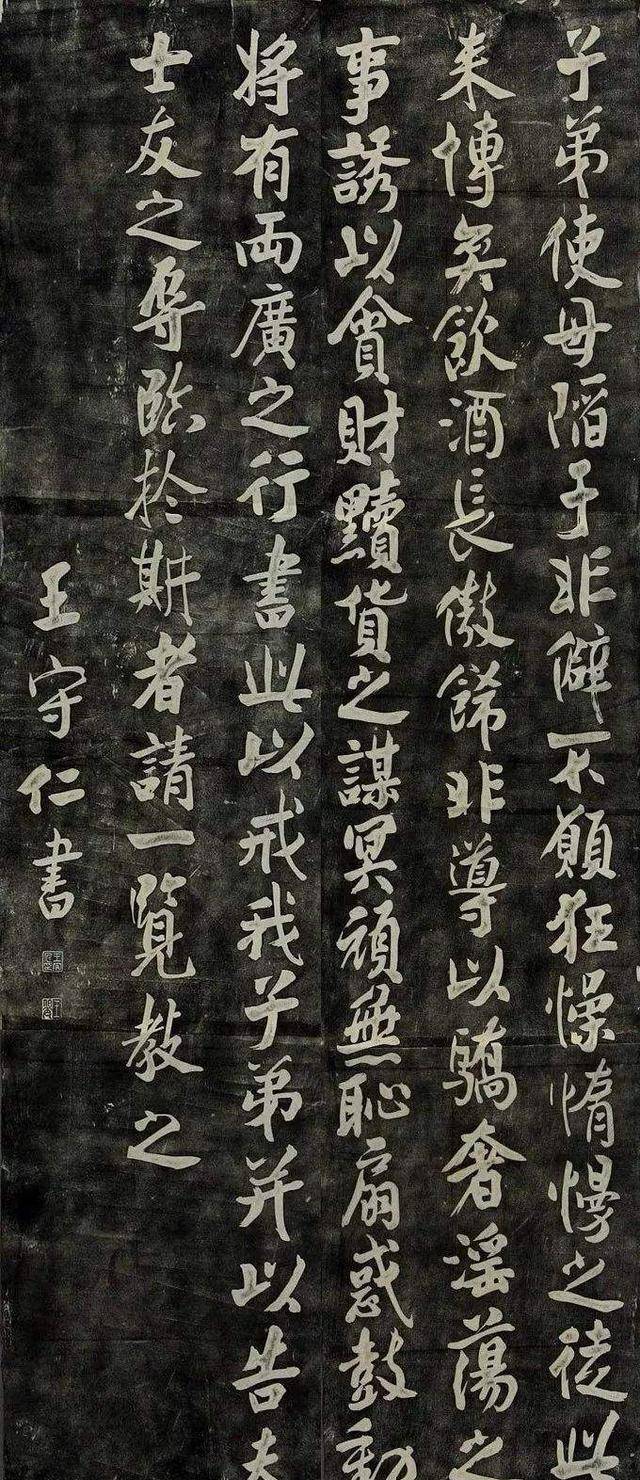 子弟使毋陷于非僻不願狂懆惰慢之徒此
来愽奕飲酒長傲餙非導以驕奢淫蕩之
事誘以貪財黷貨之謀冥頑無恥扇惑鼓動
將有兩廣之行書此以戒我子弟并以告夫
士友之辱臨於斯者請一覽教之
王守仁書